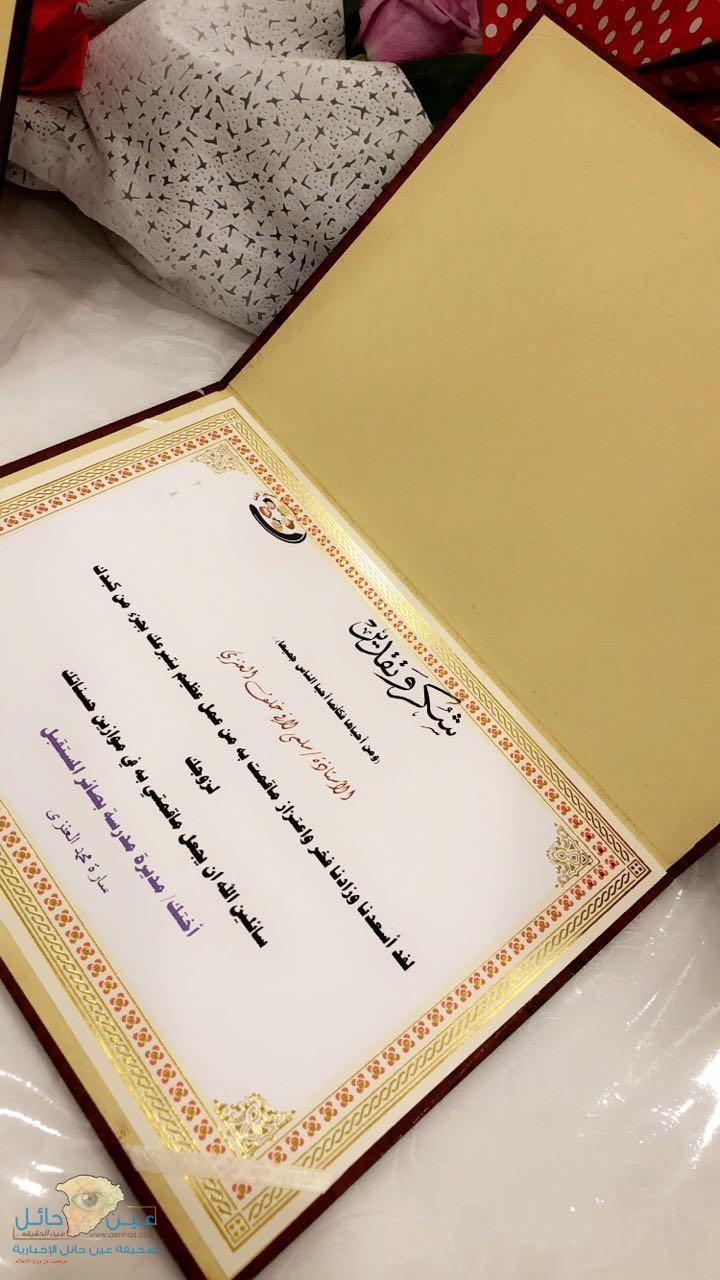 شكر وتقدير
(ومن أحياها فكأنما أحيا الناس جميعا)
الاستاذة/سلمى لافي خلف العنزي
لقد أسعدنا وزادنا فخر واعتزاز ماقمت به من عمل عظيم يشرفك بجزء من كبدك
لزوجك
سائلين الله ان يجعل ماقمتي به في موازين حسناتك
أختك/ مديرة مدرسة بصائر المستقبل
سارة محمد العنزي
عين حائل
عين الحقيقة
www.aenhail.com
صحيفة عين حائل الإخبارية
مرخصة من وزارة الاعلام